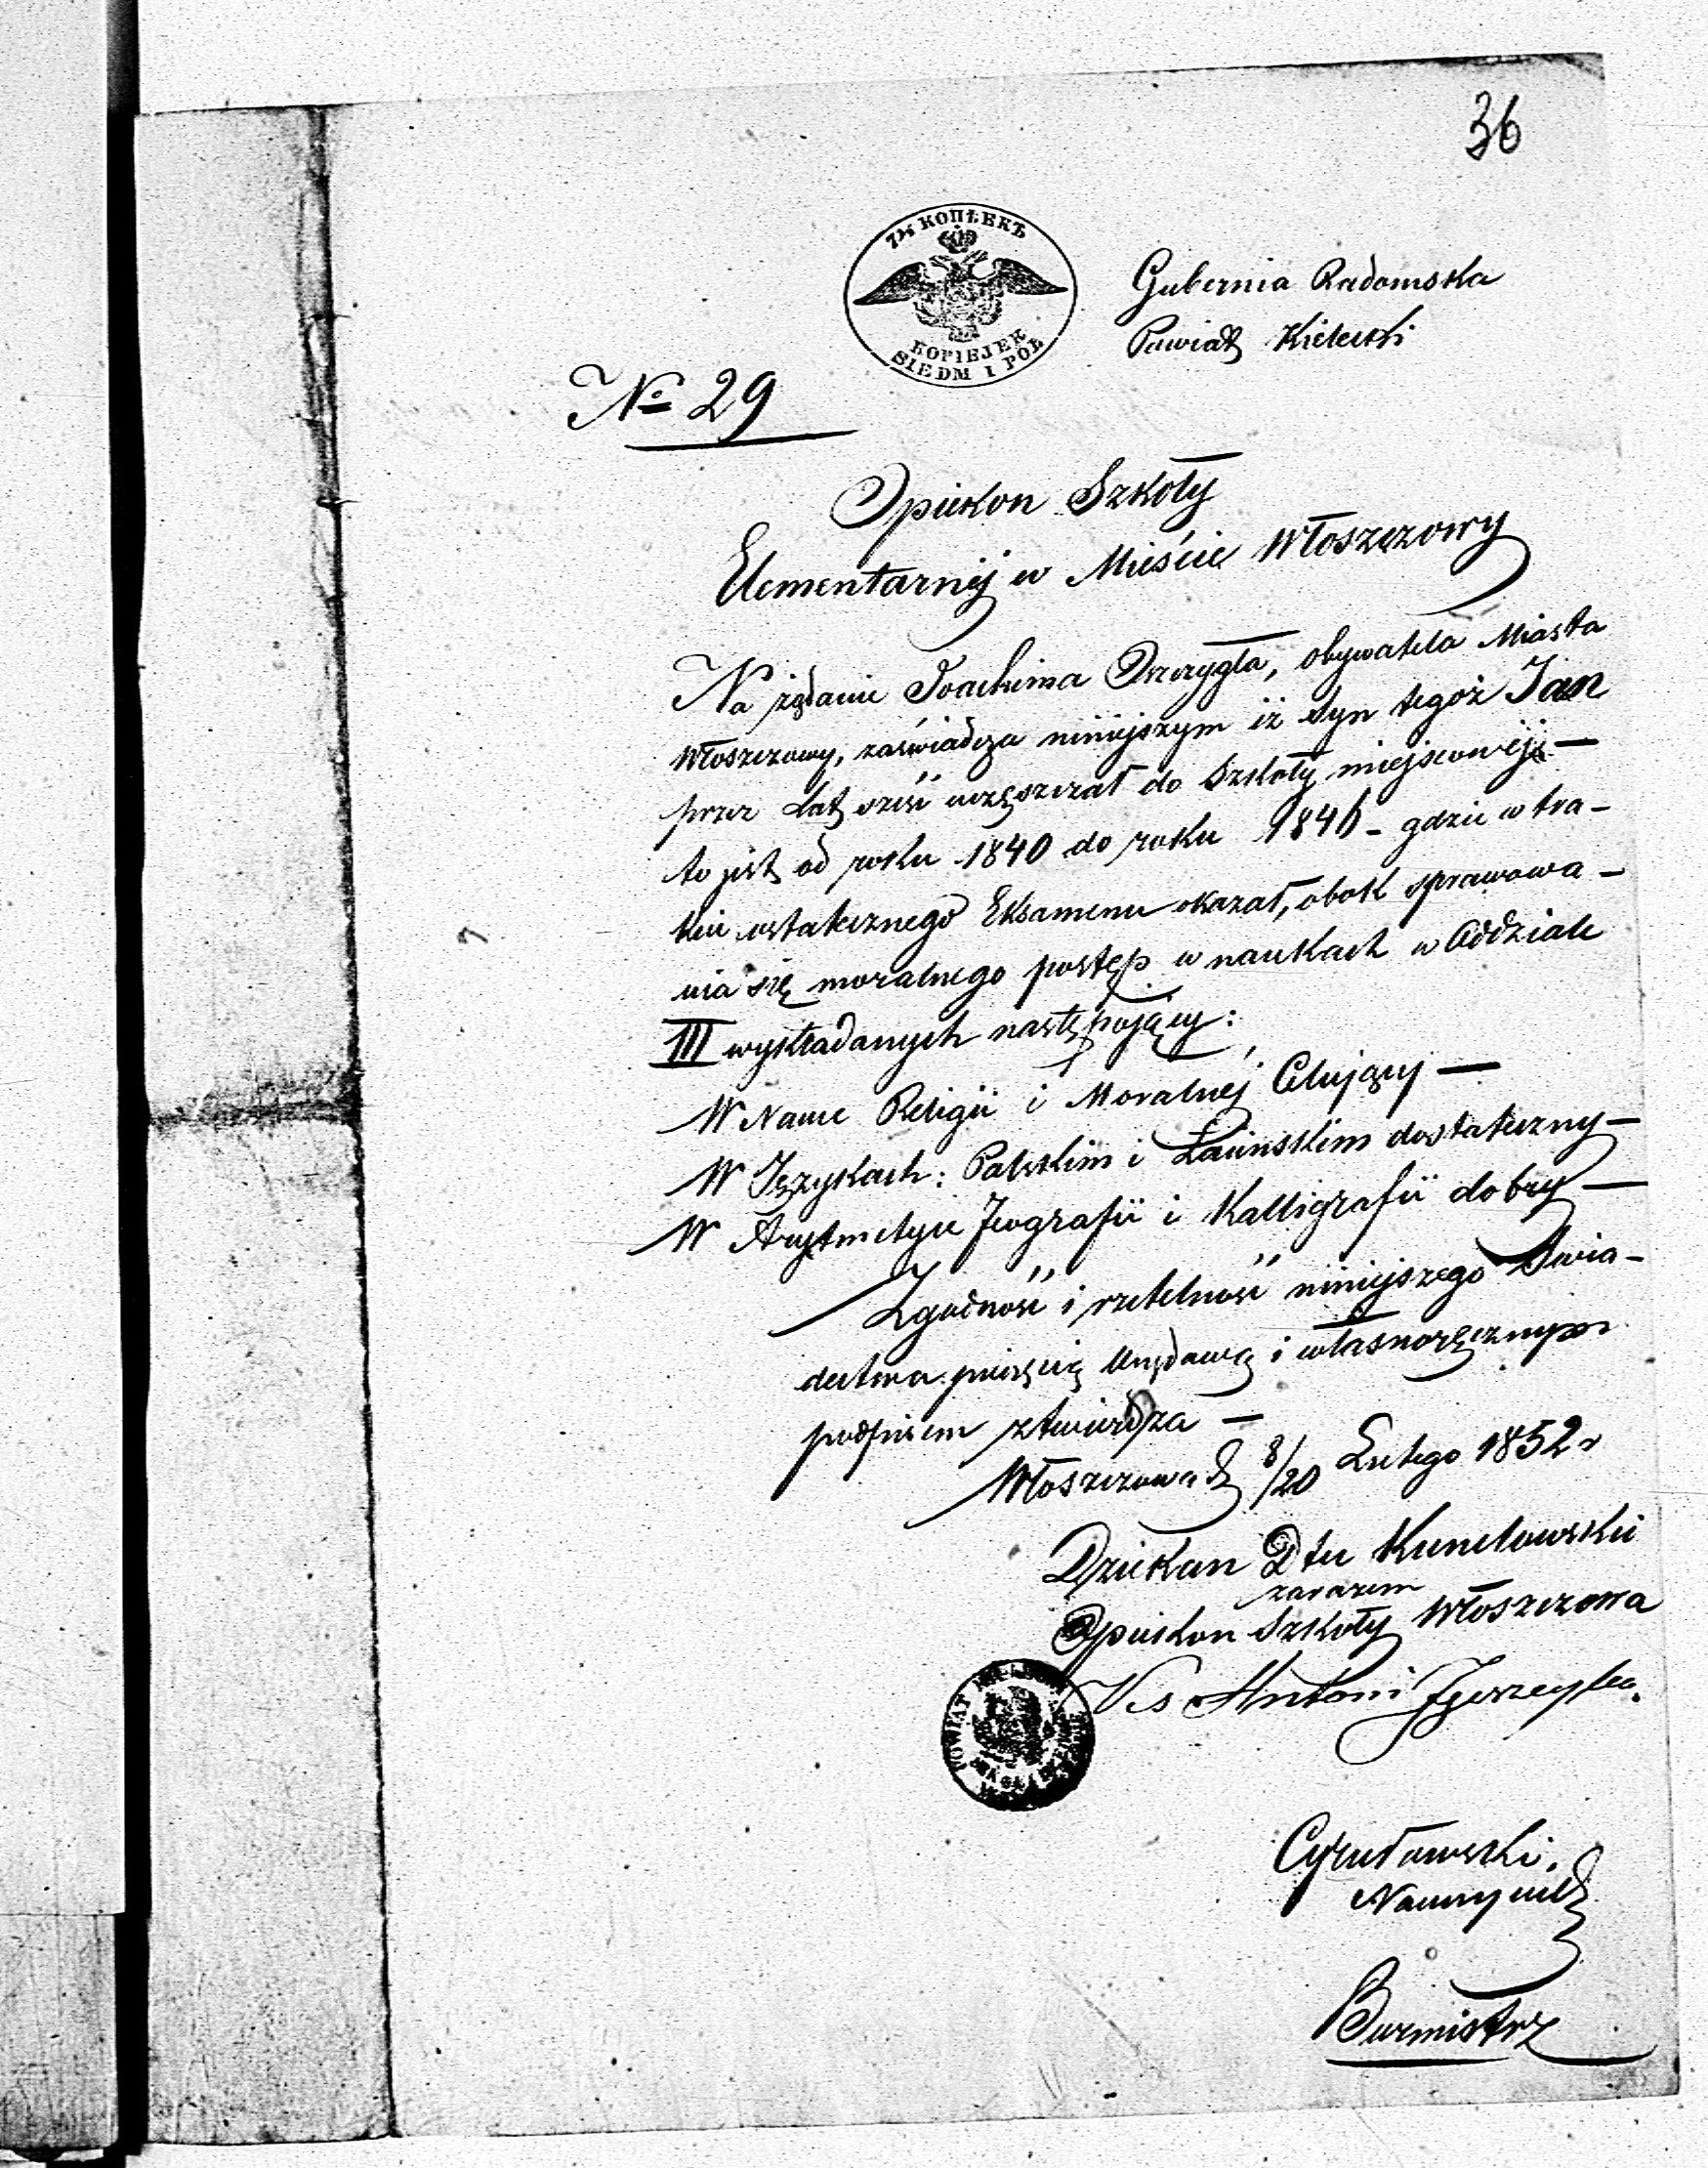 36
7½ КОПѢЕКЪ
KOPIEJEK
SIEDM I PÓŁ
Gubernia Radomska
Powiat Kielecki
№ 29
Opiekon Szkoły
Elementarnéj w Mieście Włoszczowy
Na żądanie Joachima obywatela Miasta
Włoszczowy, zaświadcza niniejszym iż Syn tegoż Jan
przez Lat sześć uczęszczał do Szkoły miejscowéj —
to jest od roku 1840 do roku 1846 - gdzie w tra-
kcie ostatecznego Eksamenu okazał, obok sprawowa-
nia się moralnego postęp w naukach w Oddziale
III wykładanych następojący:
W Nauce Religii i Moralnéj Celujący —
W Językach: Polskim i Łacińskim dostateczny —
W Arytmetyce Jeografii i Kalligrafii dobry —
Zgodność i rzetelność niniejszego Świa-
dectwa pieczęcią Urzędową i własnoręcznym
podpisem ztwierdza —
Włoszczowa d 8/20 Lutego 1852 r
Dziekan Dtu Kunelowskii
zarazem
Opiekon Szkoły Włoszczowa
Antoni
POWIAT
Nauczyciel
Burmistrz